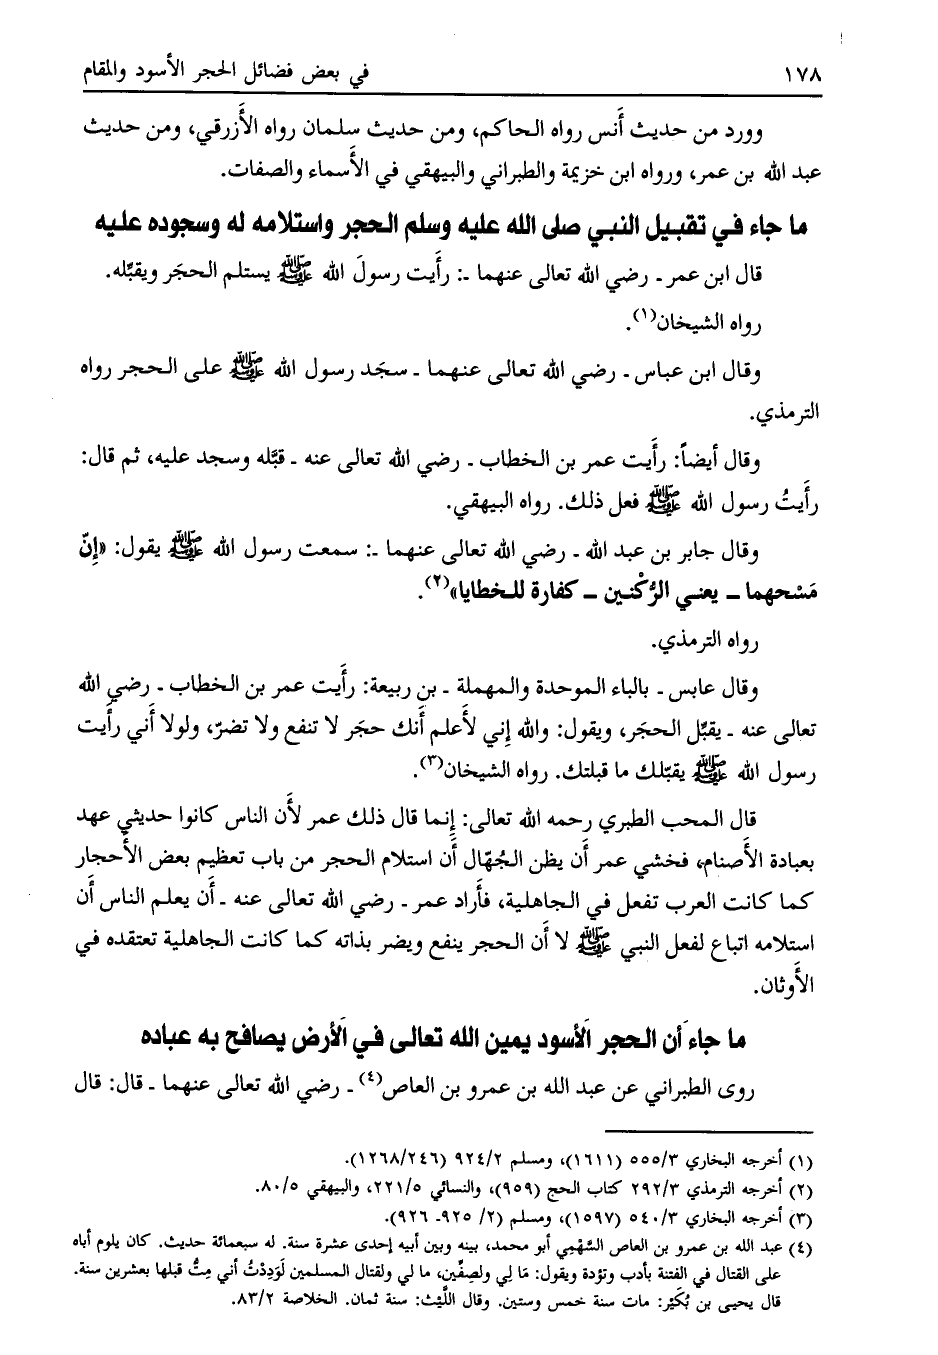 ١٧٨
في بعض فضائل الحجر الأسود والمقام
وورد من حديث أَنس رواه الحاكم، ومن حديث سلمان رواه الأَزرقي، ومن حديث
عبد الله بن عمر، ورواه ابن خزيمة والطبراني والبيهقي في الأَسماء والصفات.
ما جاء في تقبيل النبي صلى الله عليه وسلم الحجر واستلامه له وسجوده عليه
قال ابن عمر ـ رضي الله تعالى عنهما ـ: رأَيت رسولَ الله ﷺ يستلم الحجَر ويقبِّله.
رواه الشيخان(١).
وقال ابن عباس ـ رضي الله تعالى عنهما ـ سجَد رسول الله ﷺ على الحجر رواه
الترمذي.
وقال أيضاً: رأَيت عمر بن الخطاب ـ رضي الله تعالى عنه ـ قبَّله وسجد عليه، ثم قال:
رأَيتُ رسول الله ﷺ فعل ذلك. رواه البيهقي.
وقال جابر بن عبد الله ـ رضي الله تعالى عنهما ـ: سمعت رسول الله ﷺ يقول: «إِنّ
مَسْحهما ـ يعني الرُّكْنين ـ كفارة للخطايا»(٢).
رواه الترمذي.
وقال عابس ـ بالباء الموحدة والمهملة ـ بن ربيعة: رأَيت عمر بن الخطاب ـ رضي الله
تعالى عنه ـ يقبِّل الحجَر، ويقول: والله إِني لأَعلم أَنك حجَر لا تنفع ولا تضرّ، ولولا أَني رأَيت
رسول الله ﷺ يقبّلك ما قبلتك. رواه الشيخان(٣).
قال المحب الطبري رحمه الله تعالى: إِنما قال ذلك عمر لأَن الناس كانوا حديثي عهد
بعبادة الأَصنام، فخشي عمر أَن يظن الجُهّال أَن استلام الحجر من باب تعظيم بعض الأَحجار
كما كانت العرب تفعل في الجاهلية، فأَراد عمر ـ رضي الله تعالى عنه ـ أَن يعلم الناس أَن
استلامه اتباع لفعل النبي ﷺ لا أَن الحجر ينفع ويضر بذاته كما كانت الجاهلية تعتقده في
الأَوثان.
ما جاء أن الحجر الأسود يمين الله تعالى في الأرض يصافح به عباده
روى الطبراني عن عبد الله بن عمرو بن العاص(٤) ـ رضي الله تعالى عنهما ـ قال: قال
(١) أخرجه البخاري ٥٥٥/٣ (١٦١١)، ومسلم ٩٢٤/٢ (١٢٦٨/٢٤٦).
(٢) أخرجه الترمذي ٢٩٢/٣ كتاب الحج (٩٥٩)، والنسائي ٢٢١/٥، والبيهقي ٨٠/٥.
(٣) أخرجه البخاري ٥٤٠/٣ (١٥٩٧)، ومسلم (٢/ ٩٢٥ـ ٩٢٦).
(٤) عبد الله بن عمرو بن العاص السَّهْمِي أبو محمد، بينه وبين أبيه إحدى عشرة سنة. له سبعمائة حديث. كان يلوم أباه
على القتال في الفتنة بأدب وتؤدة ويقول: مَا لِي ولصِفِّين، ما لي ولقتال المسلمين لَوَدِدْتُ أني مِتُّ قبلها بعشرين سنة.
قال يحيى بن بُكَيْر: مات سنة خمس وستين. وقال اللَّيْث: سنة ثمان. الخلاصة ٨٣/٢.